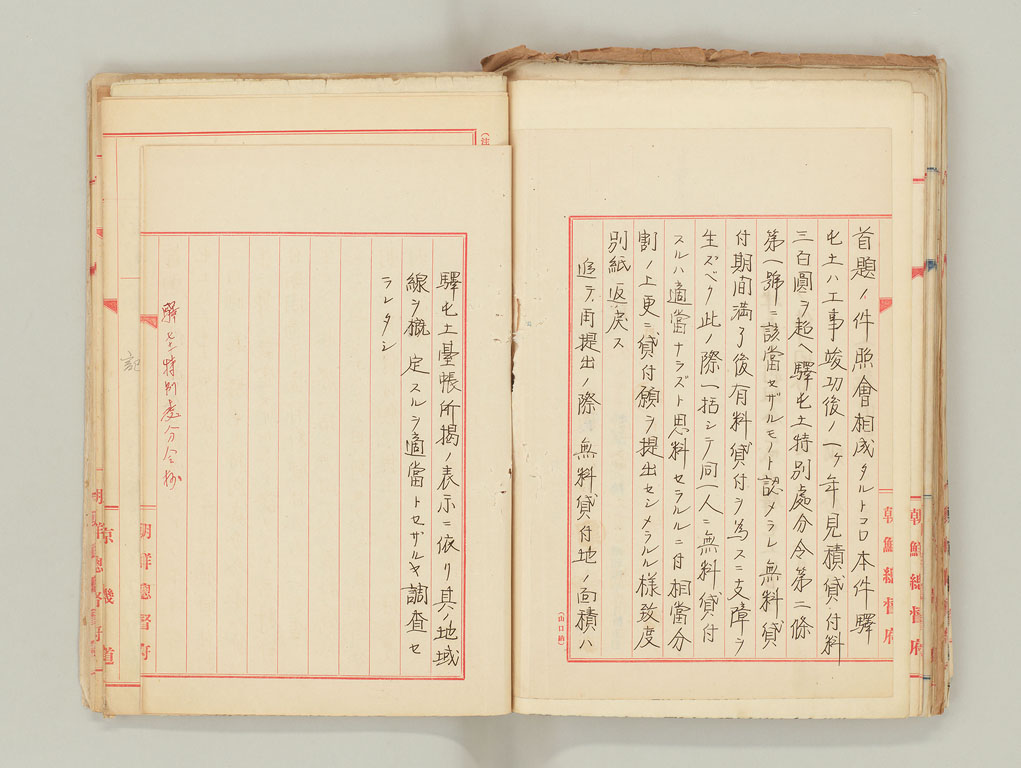 首題ノ件照會相成タルトコロ本件驛
屯土ハ工事竣功後ノ一ヶ年見積貸付料
三百圓ヲ超ヘ驛屯土特別處分令第二條
第一號ニ該當セザルモノト認メラレ無料貸
付期間満了後有料貸付ヲ為スニ支障ヲ
生ズベク此ノ際一括シテ同一人ニ無料貸付
スルハ適當ナラズト思料セラルルニ付相當分
割ノ上更ニ貸付願ヲ提出セシメラルル様致度
別紙返戻ス
追テ再提出ノ際無料貸付地ノ面積ハ
朝鮮總督府
朝鮮總督府
(山口納)
驛屯土臺帳所揭ノ表示ニ依リ其ノ地域
線ヲ概定スルヲ適當トセザルヤ調査セ
ラレタシ
驛屯土特別處分令
朝鮮總督府
記
京畿道
朝鮮總督府
(注